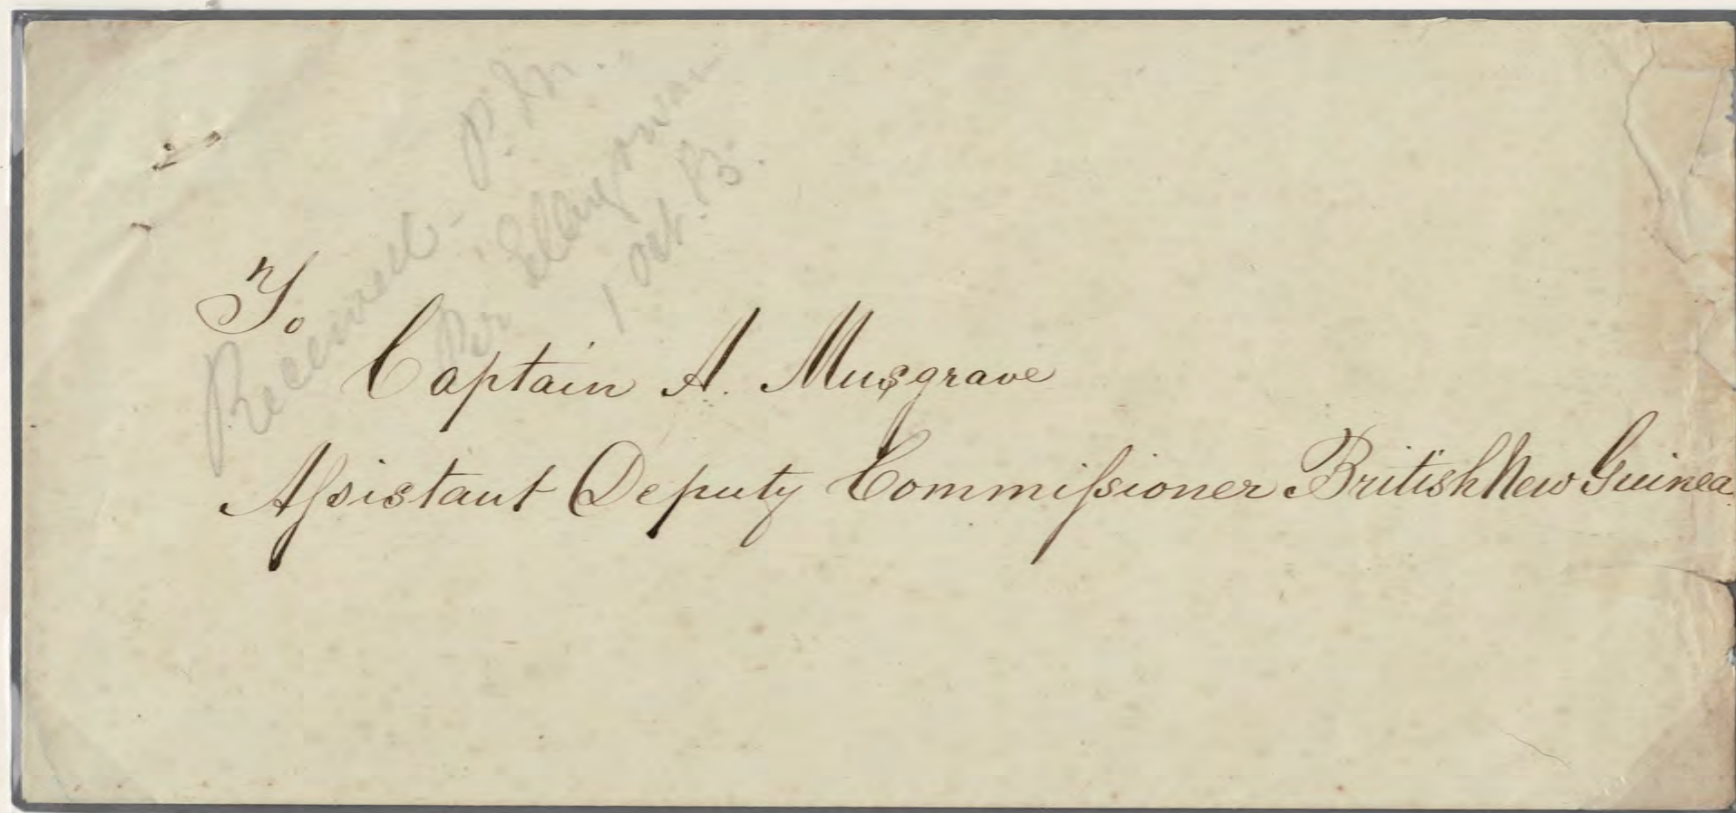 Received - P.M.
Per Ellangowan
1 Oct. 85.
To
Captain A. Musgrave
Aſsistant Deputy Commiſsioner British New Guinea